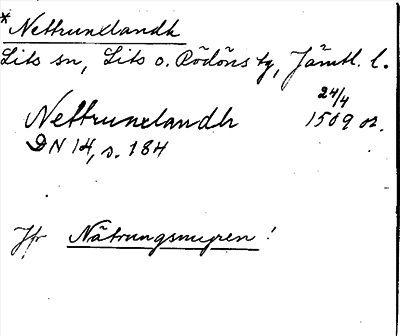 *Nettrunxlandh
Lits sn, Lits o. Rödöns tg, Jämtl. l.
24/4
Nettrunxlandh 1509 or.
DN 14, s. 184
Jfr Nätrungsmyren!